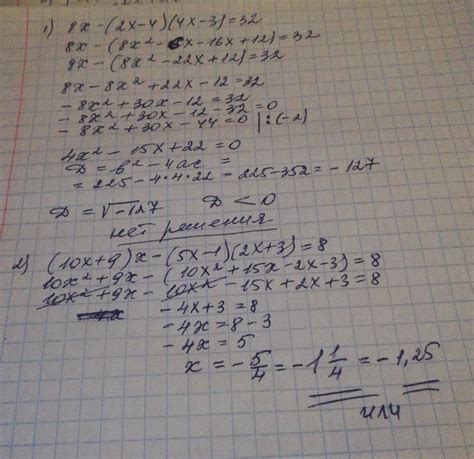 1) 8x-(2x-4)(4x-3)=32
8x-(8x²-6x-16x+12)=32
8x-(8x²-22x+12)=32
8x-8x²+22x-12=32
-8x²+30x-12=32
-8x²+30x-12-32=0
-8x²+30x-44=0 |:(-2)
4x²-15x+22=0
D=b²-4ac=
=225-4·4·22=225-352=-127
D=√-127 D<0
нет решения
2) (10x+9)x-(5x-1)(2x+3)=8
10x²+9x-(10x²+15x-2x-3)=8
10x²+9x-10x²-15x+2x+3=8
-4x+3=8
-4x=8-3
-4x=5
x=-5/4=-1 1/4=-1,25
или